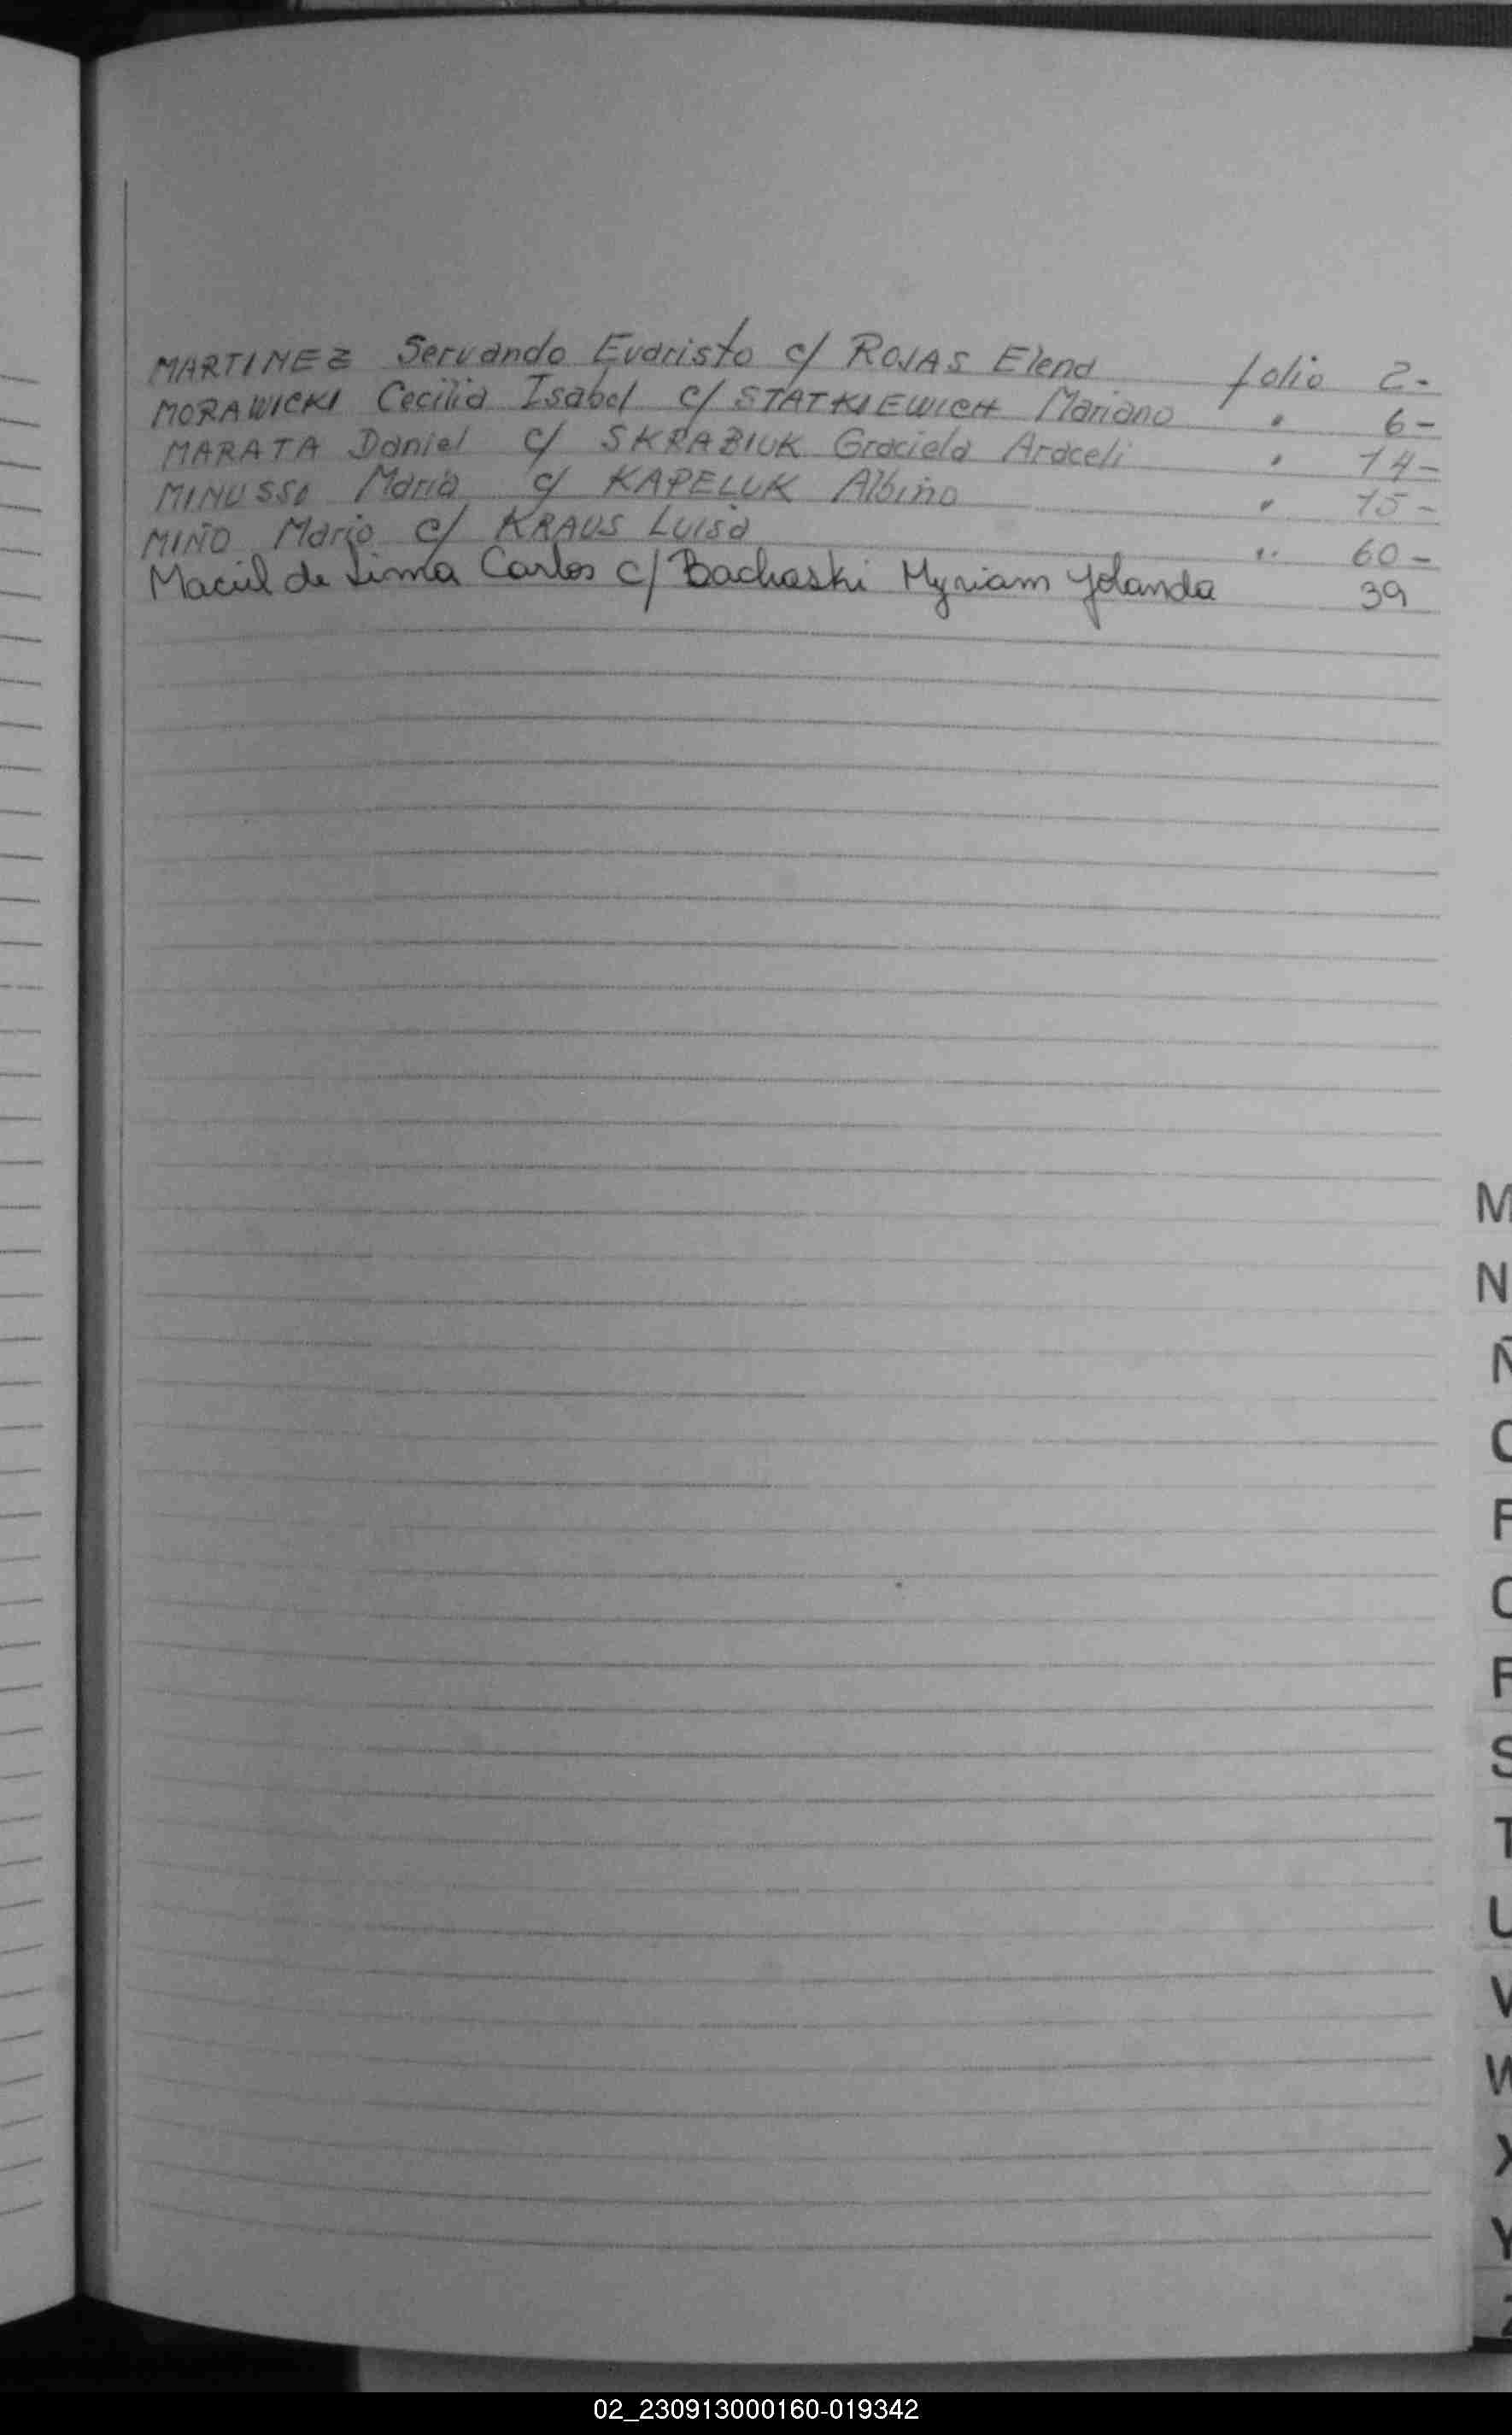 MARTINEZ Servando Evaristo c/ ROJAS Elena folio 2-
MORAWICKI Cecilia Isabel c/ STATKIEWICH Mariano " 6-
MARATA Daniel c/ SKRABIUK Graciela Araceli " 14-
MINUSSO Maria c/ KAPELUK Albino " 15-
MIÑO Mario c/ KRAUS Luisa " 60-
Maciel de Lima Carlos c/ Bachaski Myriam Yolanda 39
M
N
Ñ
O
P
Q
R
S
T
U
V
W
X
Y
Z
02_230913000160-019342